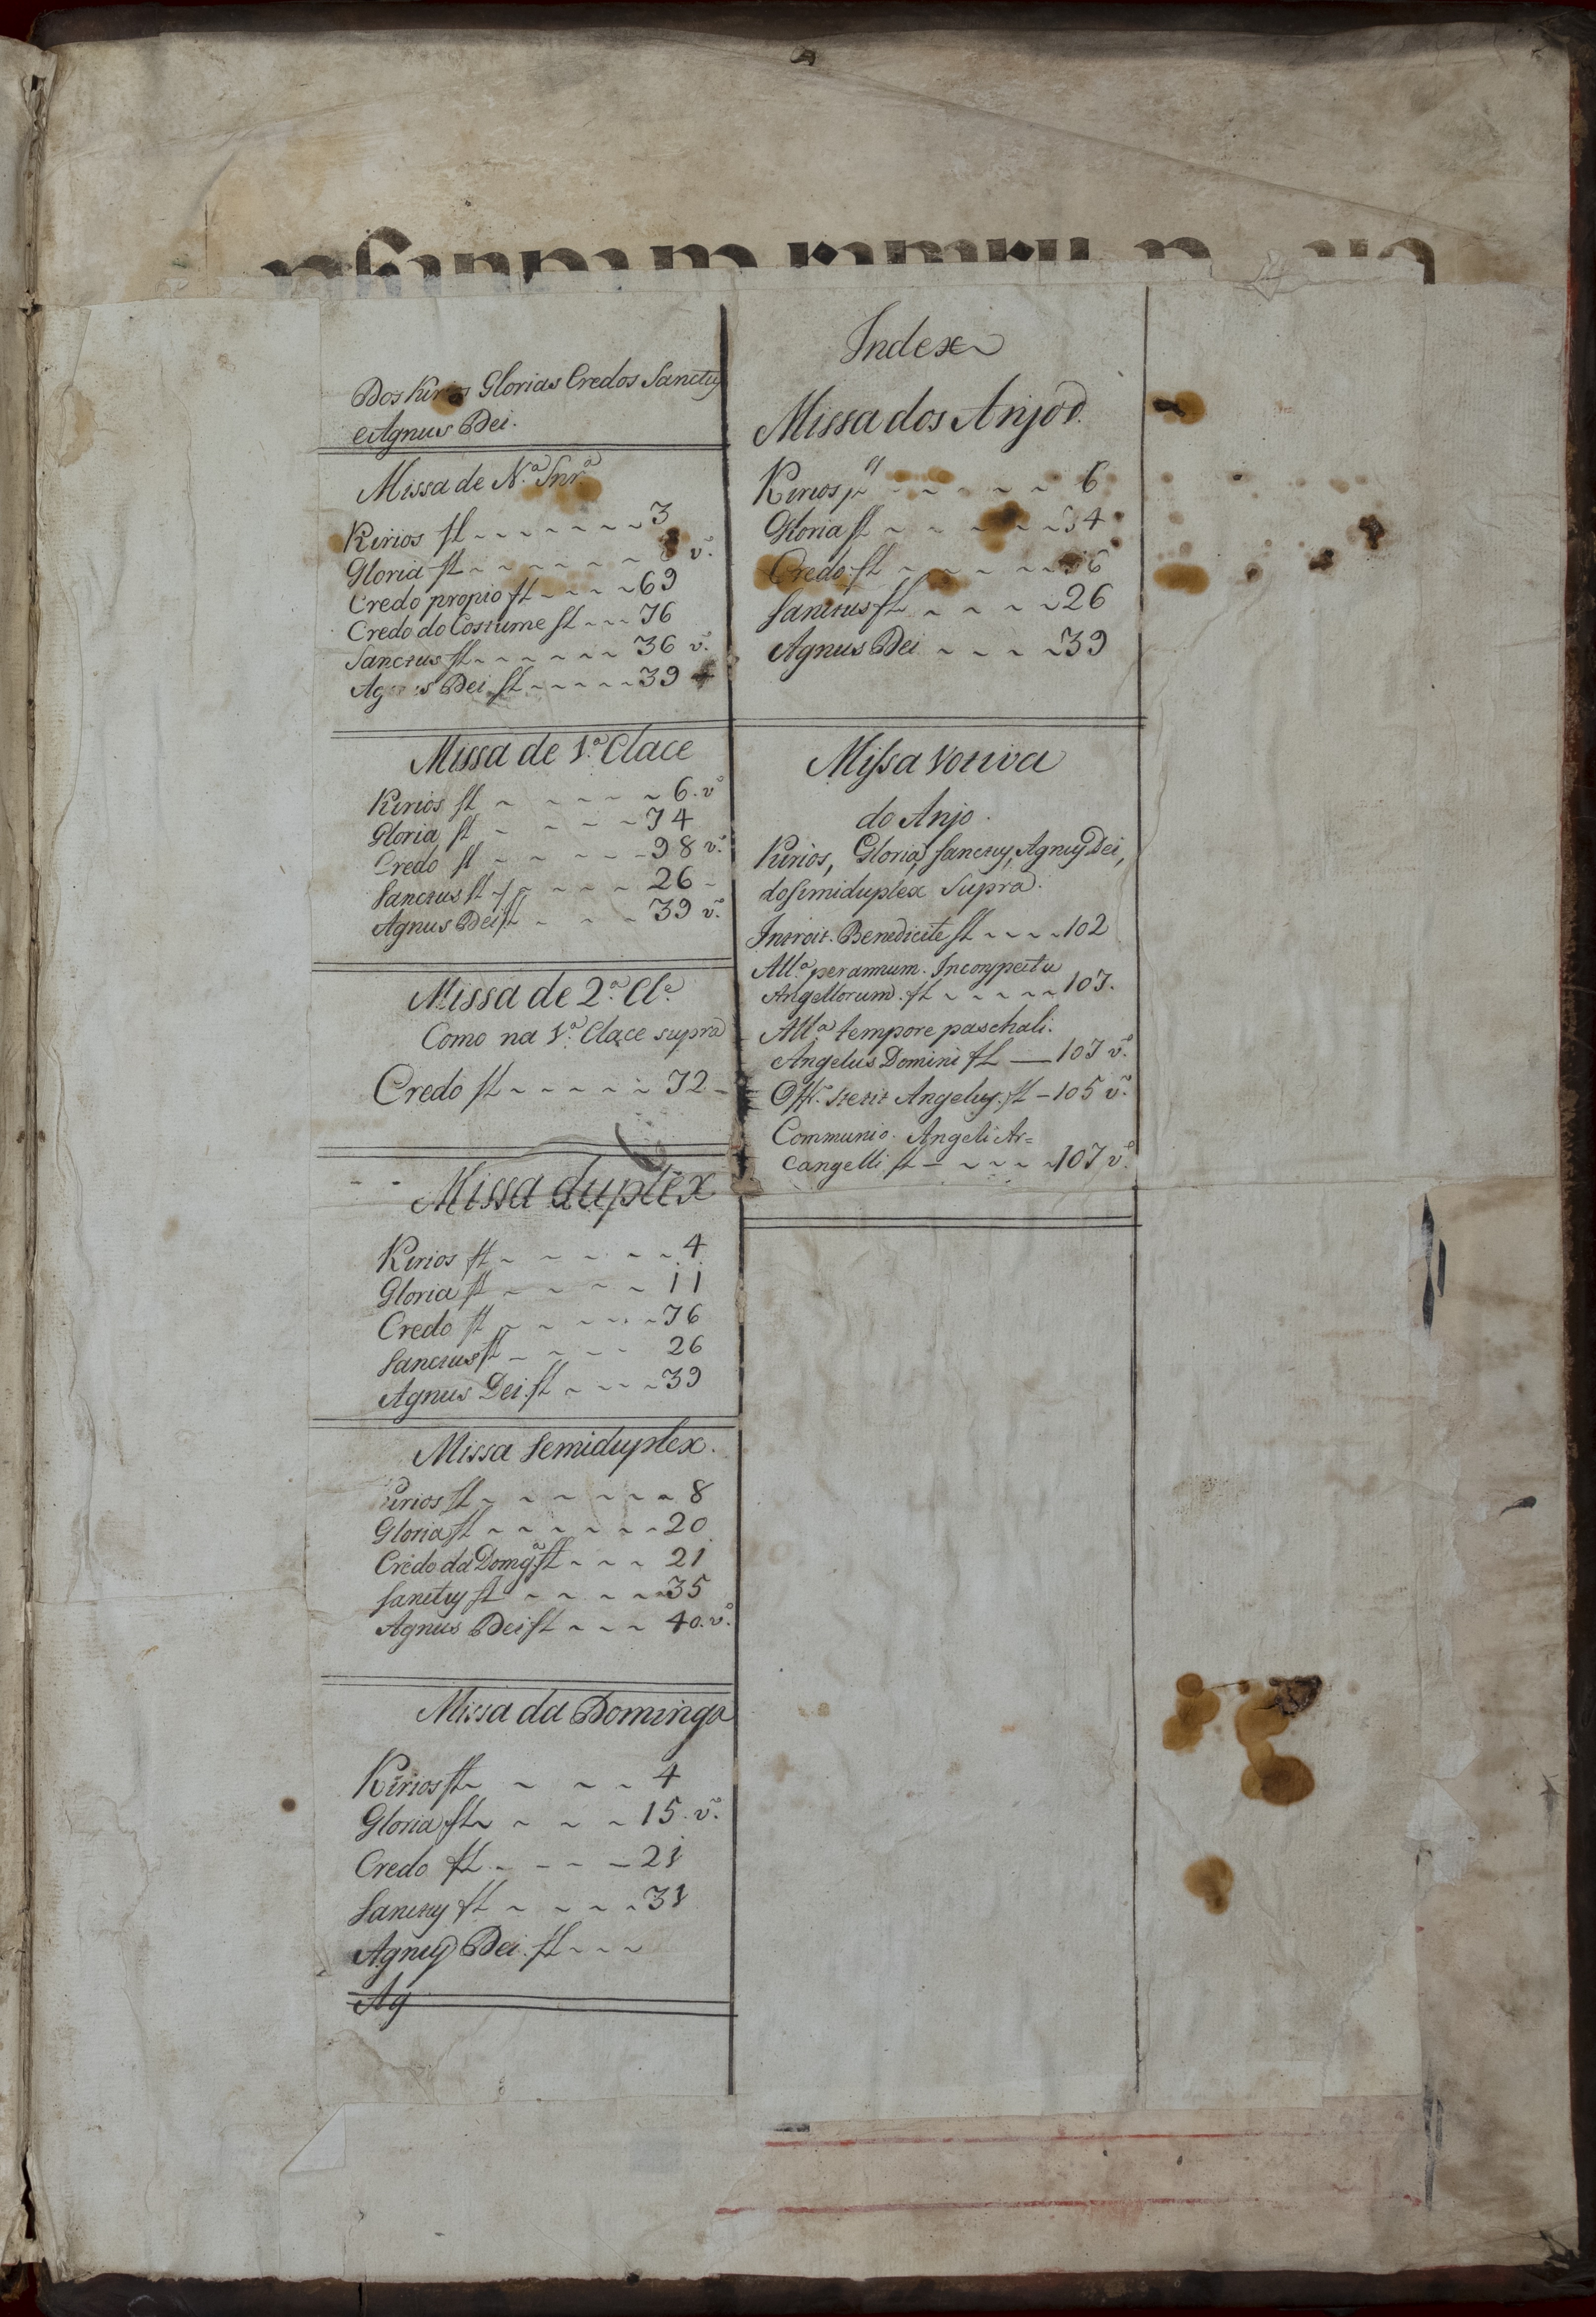 Dos Kirios Glorias Credos Sanctus
e Agnus Dei.
Missa de N.ª Snr.ª
Kirios fl 3
Gloria fl v.º
Credo propio fl 69
Credo do Costume fl 76
Sanctus fl 36 v.º
Agnus Dei fl 39
Missa de 1.ª Clace
Kirios fl 6. vº
Gloria fl 14
Credo fl 98 v.º
Sanctus fl 26
Agnus Dei fl 39 v.º
Missa de 2.ª Cl.e
Como na 1.ª Clace supra
Credo fl 72
Missa duplex
Kirios fl 4
Gloria fl 11
Credo fl 76
Sanctus fl 26
Agnus Dei. fl 39
Missa Semiduplex.
Kirios fl 8
Gloria fl 20
Credo da Domgª fl 21
Sanctus fl 35
Agnus Dei fl 40. v.º
Missa da Dominga
Kirios fl 4
Gloria fl 15. v.º
Credo fl 21
Sanctus fl 31
Agnus Dei. fl
Ag
Index
Missa dos Anjos.
Kirios 6
Gloria fl 14
Credo fl
Sanctus fl 26
Agnus Dei 39
Missa Votiva
do Anjo.
Kirios, Gloria, Sanctus, Agnus Dei,
do Simiduplex Supra.
Introit. Benedicite fl 102
All.ª per annum. In conspectu
Angellorum. fl 103.
All.ª tempore paschali.
Angelus Domini fl 103 v.º
Off.º Stetit Angelus. fl 105 v.º
Communio. Angeli Ar=
cangelli fl 107 v.º